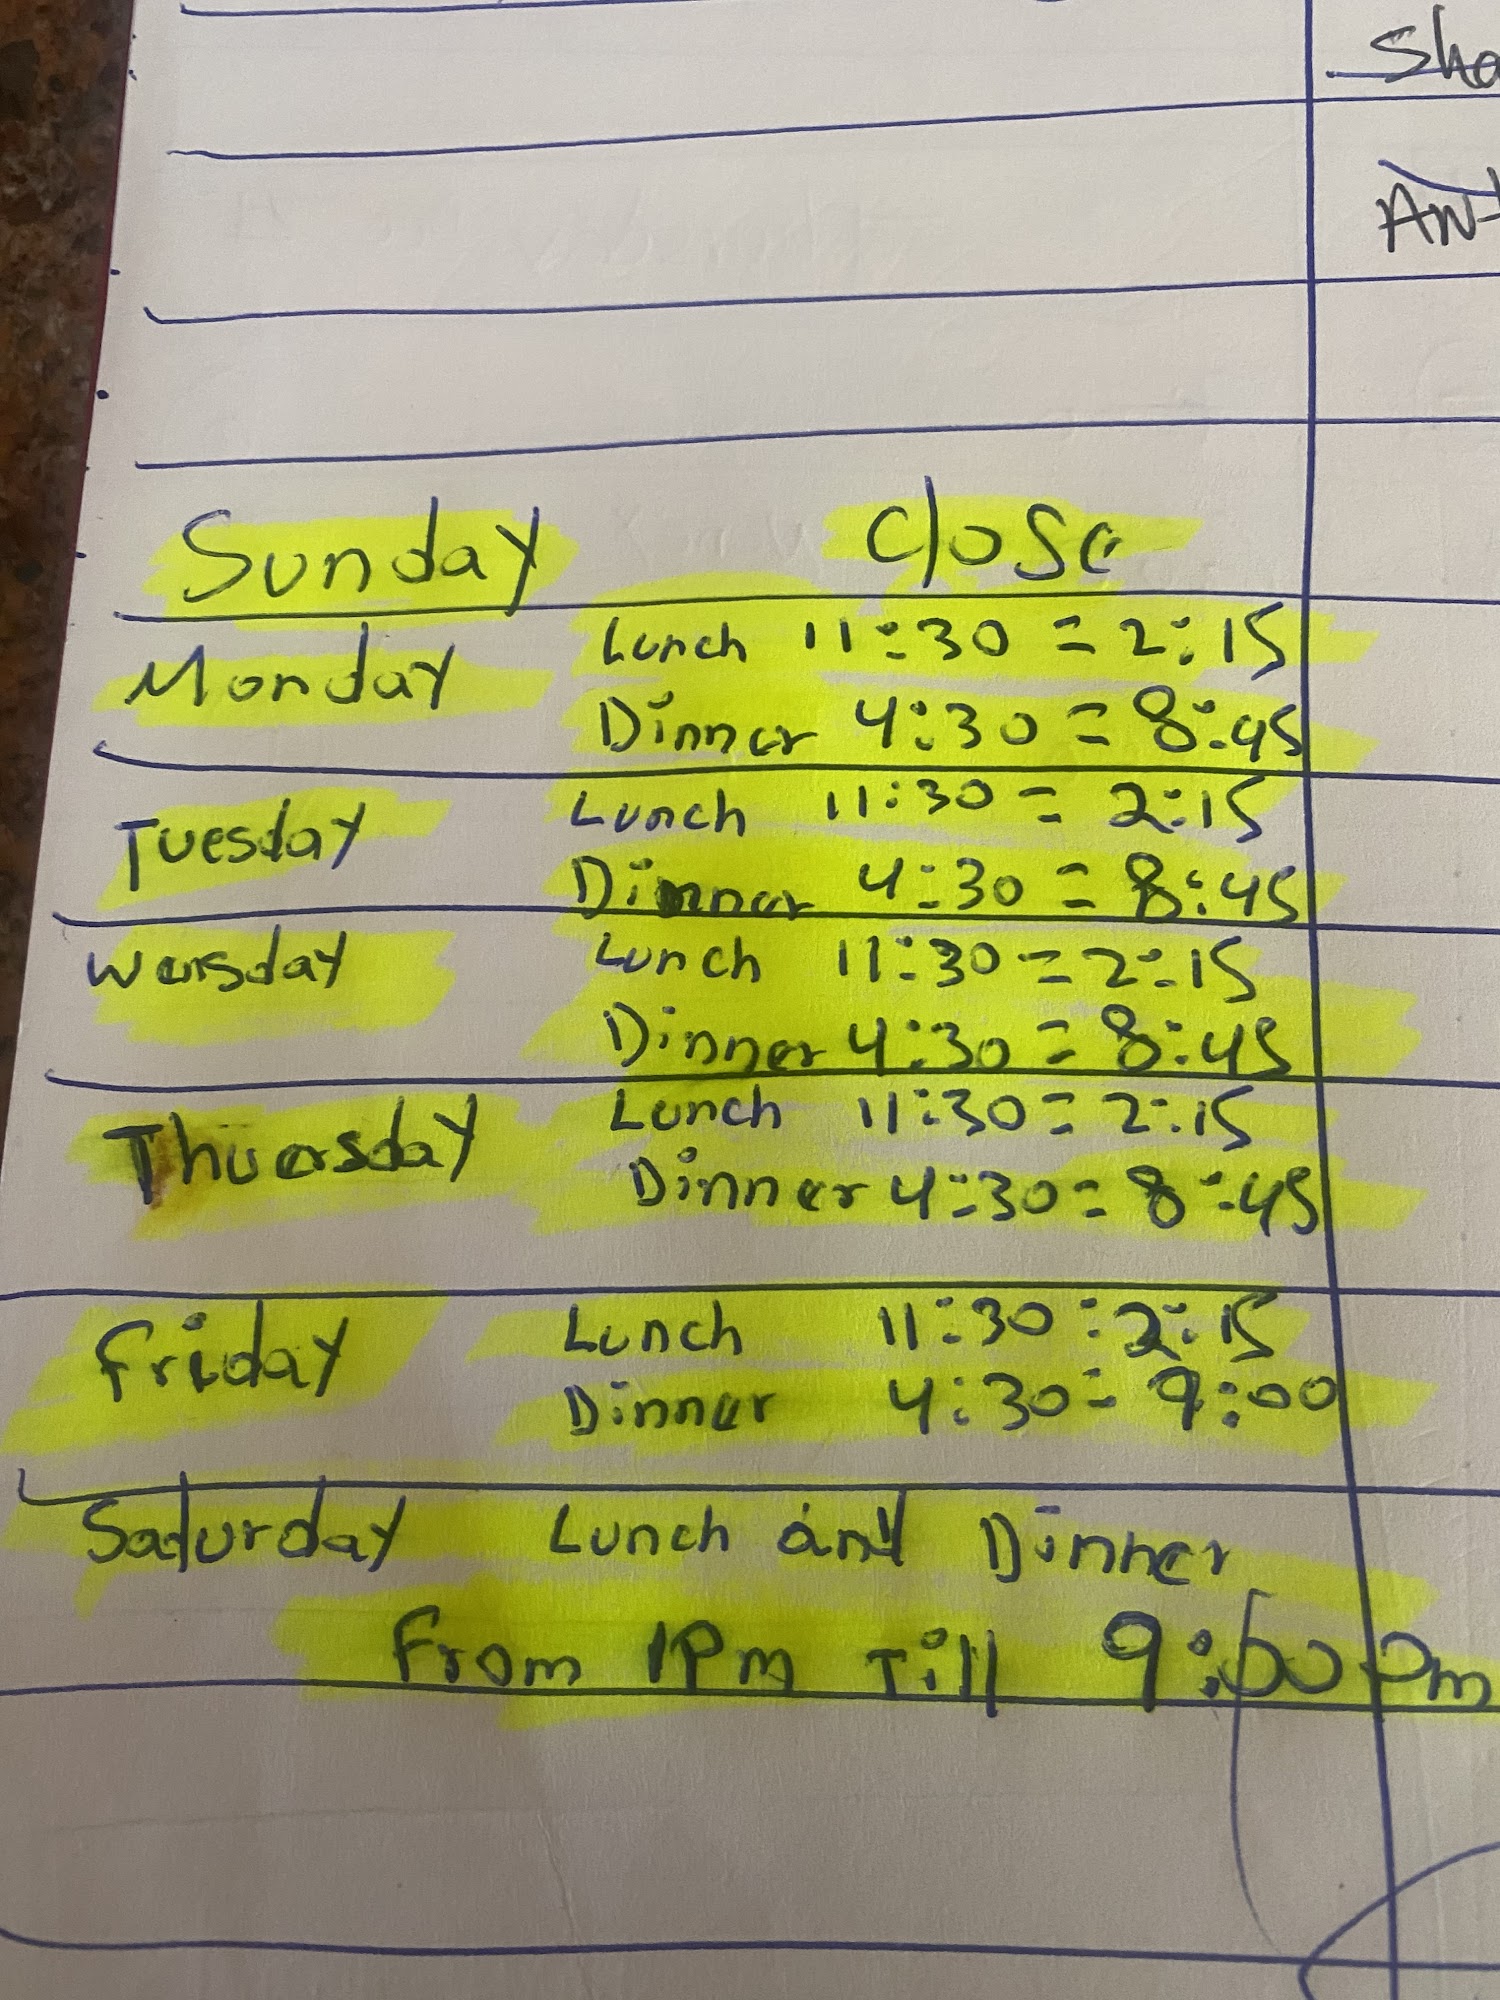 Sunday Close
Monday Lunch 11:30 = 2:15
Dinner 4:30 = 8:45
Tuesday Lunch 11:30 = 2:15
Dinner 4:30 = 8:45
Wersday Lunch 11:30 = 2:15
Dinner 4:30 = 8:45
Thuersday Lunch 11:30 = 2:15
Dinner 4:30 = 8:45
Friday Lunch 11:30 : 2:15
Dinner 4:30 = 9:00
Saturday Lunch and Dinner
From 1Pm Till 9:00 Pm